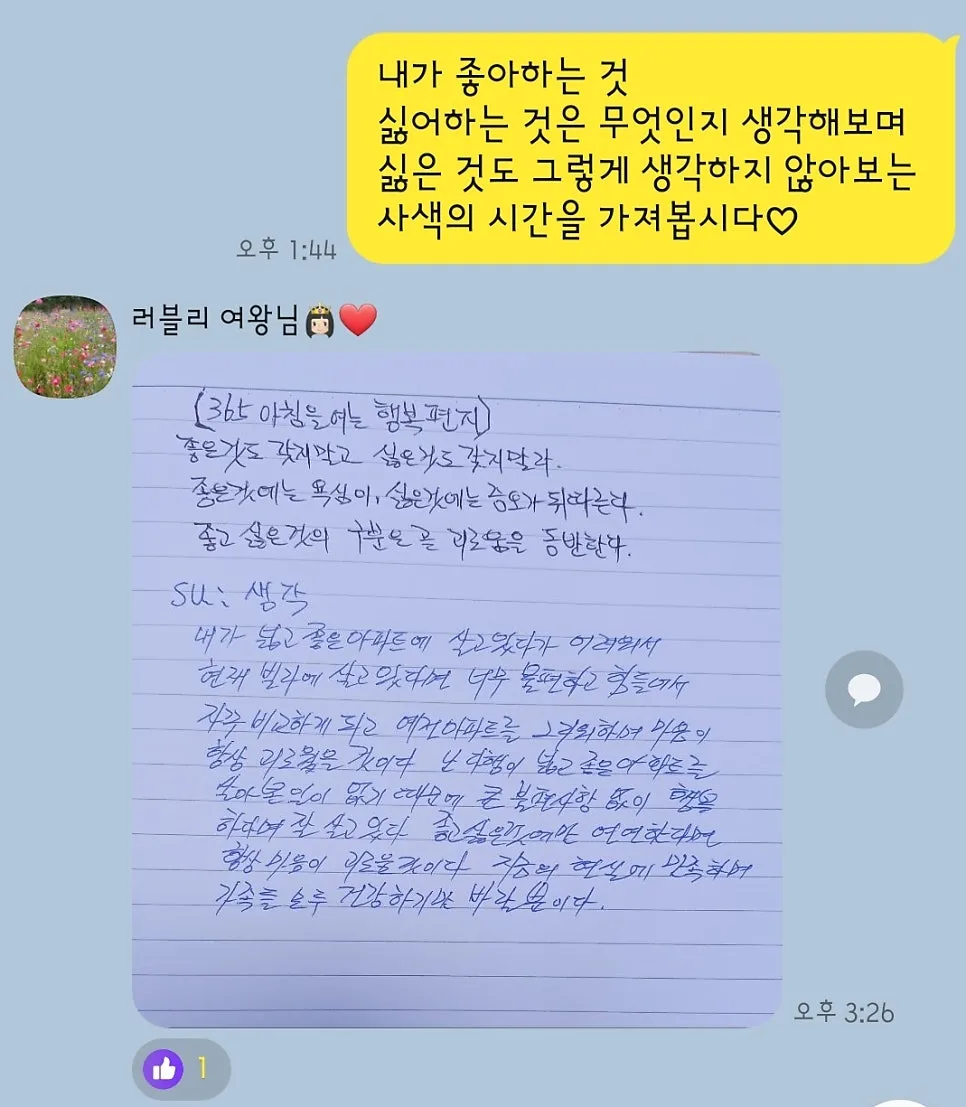 내가 좋아하는 것
싫어하는 것은 무엇인지 생각해보며
싫은 것도 그렇게 생각하지 않아보는
사색의 시간을 가져봅시다♡
오후 1:44
러블리 여왕님👸🏻❤️
(365 아침을 여는 행복편지)
좋은것도 갖지말고 싫은것도 갖지말라.
좋은것에는 욕심이, 싫은것에는 증오가 뒤따른다.
좋고 싫은것의 구분은 곧 괴로움을 동반한다.
SU: 생각
내가 넓고 좋은아파트에 살고있다가 어려워서
현재 빌라에 살고있다면 너무 불편하고 힘들어서
자주 비교하게 되고 예전아파트를 그리워하며 마음이
항상 괴로웠을 것이다 난 다행이 넓고 좋은 아파트를
살아본일이 없기 때문에 큰 불편사항 없이 행복
하다며 잘 살고있다 좋고싫은것에만 연연한다면
항상 마음이 괴로울것이다 지금의 현실에 만족하며
가족들 모두 건강하기만 바랄 뿐이다.
오후 3:26
1